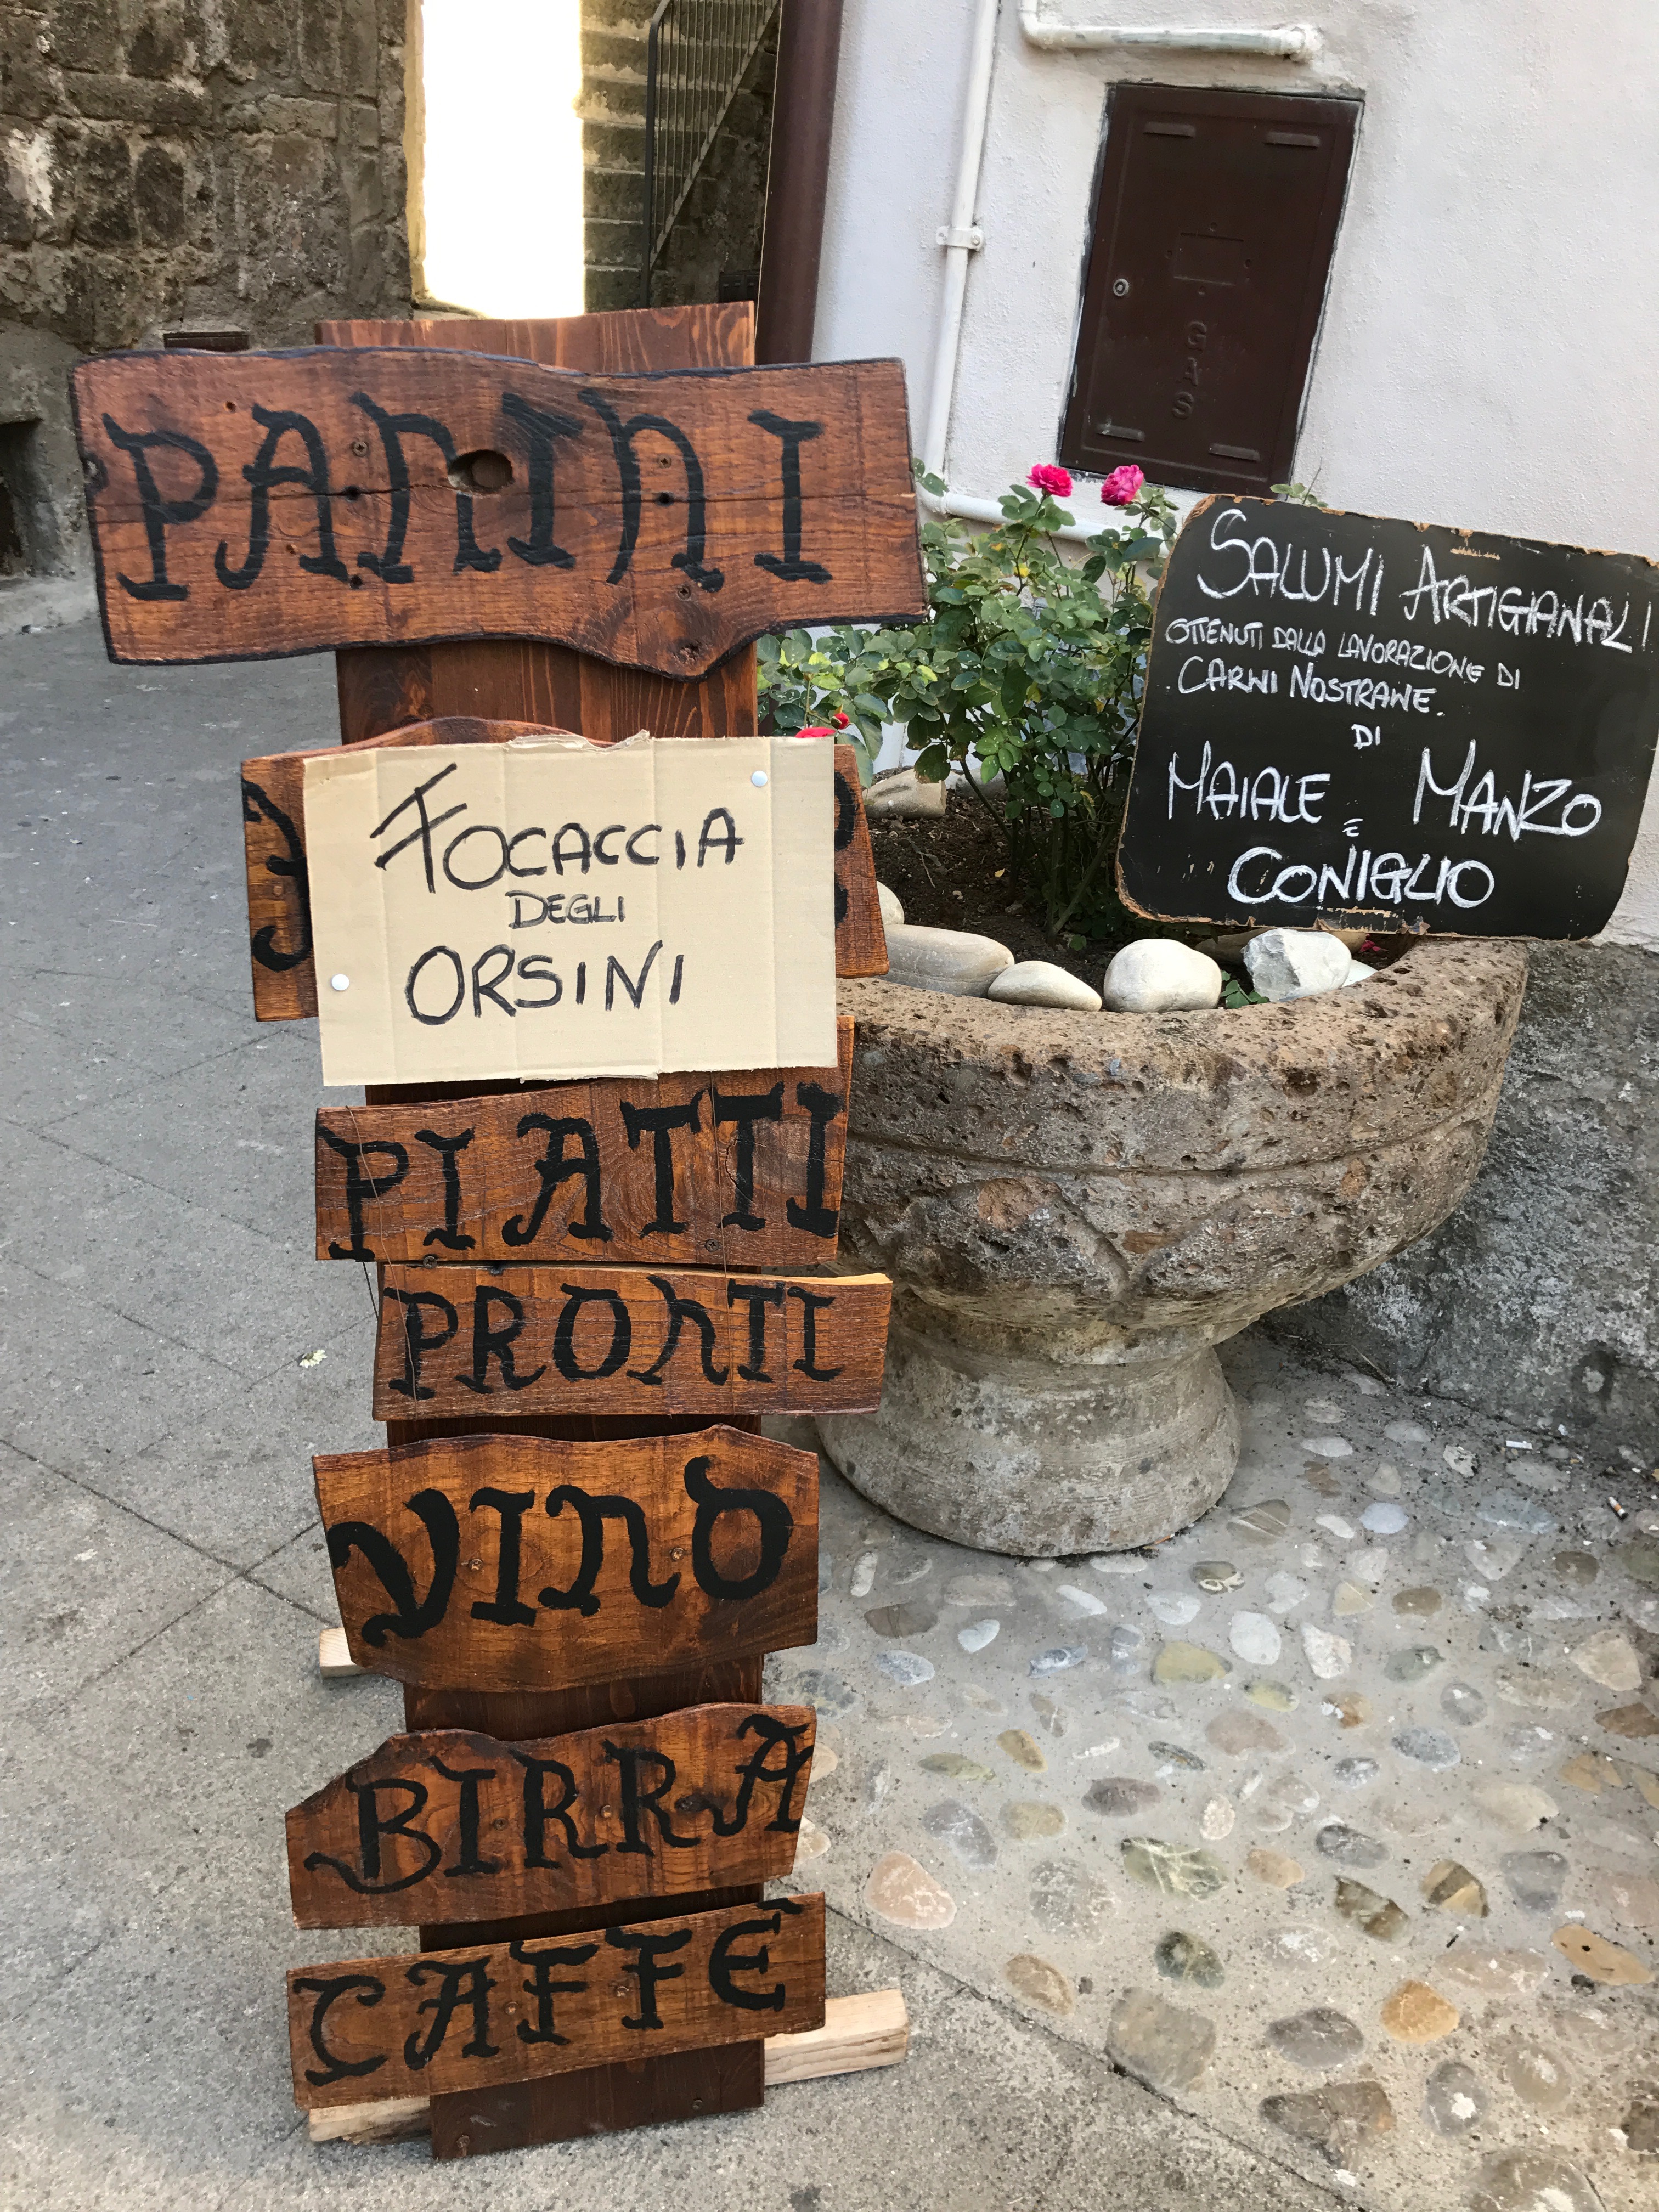 PANINI
FOCACCIA
DEGLI
ORSINI
PIATTI
PRONTI
VINO
BIRRA
CAFFÈ
GAS
SALUMI ARTIGIANALI
OTTENUTI DALLA LAVORAZIONE DI
CARNI NOSTRANE.
DI
MAIALE E MANZO
CONIGLIO